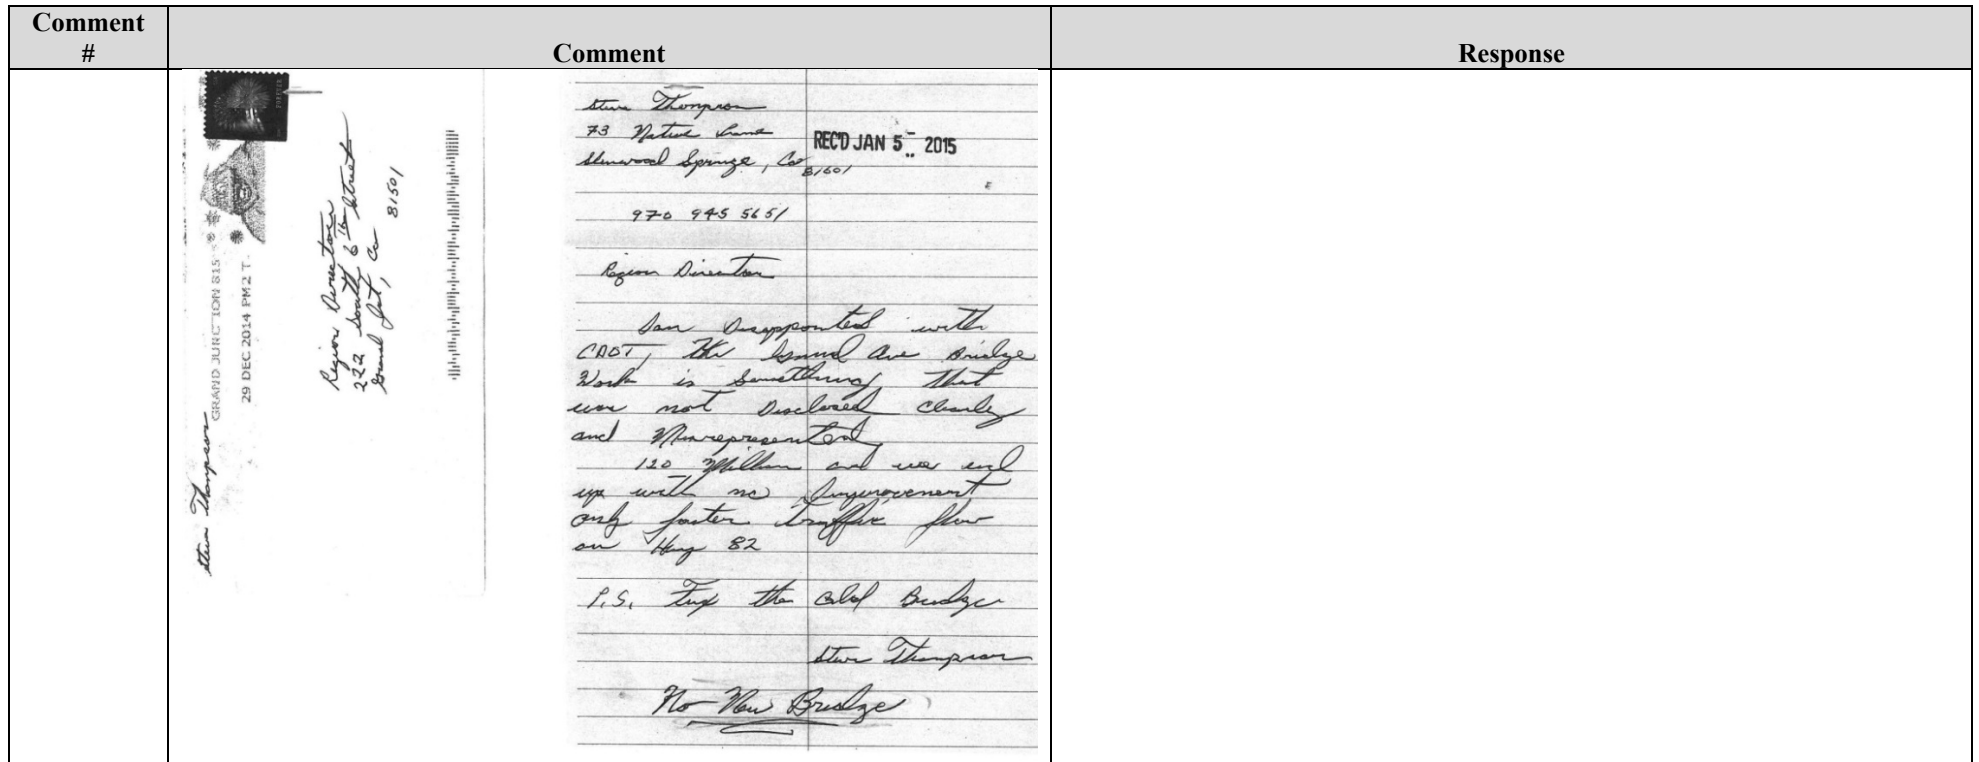 Comment
#
Comment
Response
Steve Thompson
GRAND JUNCTION 815
29 DEC 2014 PM 2 T
Region Director
222 South 6th Street
Grand Jct, Co
81501
Steve Thompson
73 Native
Springs, Co 81601
REC'D JAN 5 2015
970 945 5651
Region Director
I am Disappointed with
CDOT, the Grand Ave Bridge
Work is Something That
was not Disclosed Clearly
and Misrepresented
120 Million and we end
up with no Improvement
only faster traffic flow
on Hwy 82
P.S. Fix the old Bridge
Steve Thompson
No New Bridge